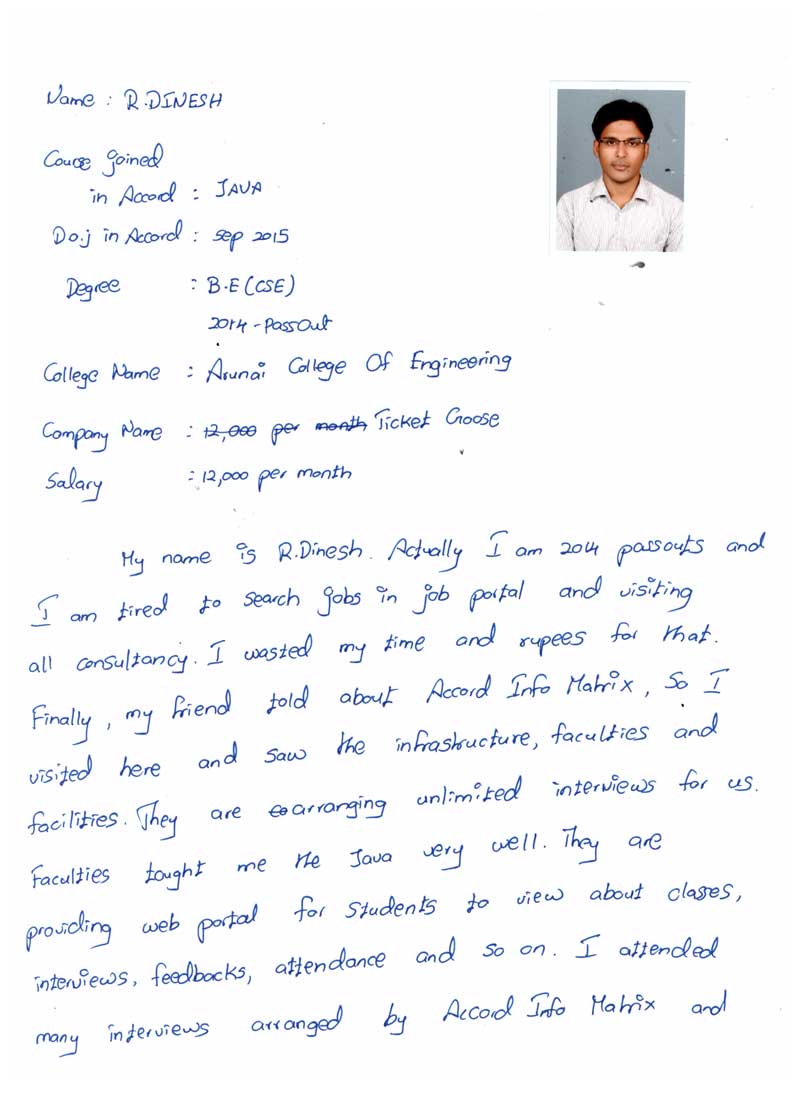 Name : R.DINESH
Course joined
in Accord : JAVA
D.o.j in Accord : Sep 2015
Degree : B.E (CSE)
2014 - PassOut
College Name : Arunai College Of Engineering
Company Name : 12,000 per month Ticket Goose
Salary : 12,000 per month
My name is R.Dinesh. Actually I am 2014 passouts and
I am tired to search jobs in job portal and visiting
all consultancy. I wasted my time and rupees for that.
Finally, my friend told about Accord Info Matrix, So I
visited here and saw the infrastructure, faculties and
facilities. They are arranging unlimited interviews for us.
Faculties tought me the Java very well. They are
providing web portal for students to view about classes,
interviews, feedbacks, attendance and so on. I attended
many interviews arranged by Accord Info Matrix and